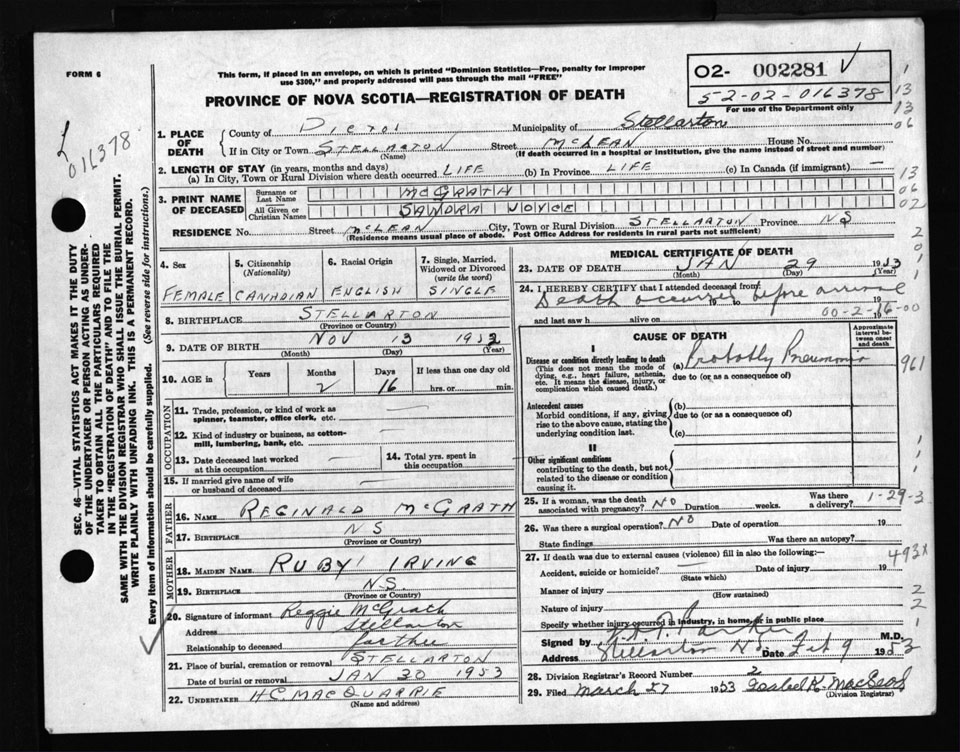 FORM 6
This form, if placed in an envelope, on which is printed "Dominion Statistics—Free, penalty for improper
use $300," and properly addressed will pass through the mail "FREE"
PROVINCE OF NOVA SCOTIA—REGISTRATION OF DEATH
O2- 002281
52-02-016378
For use of the Department only
016378
SEC. 46—VITAL STATISTICS ACT MAKES IT THE DUTY
OF THE UNDERTAKER OR PERSON ACTING AS UNDER-
TAKER TO OBTAIN ALL THE PARTICULARS REQUIRED
IN THE "REGISTRATION OF DEATH" AND TO FILE THE
SAME WITH THE DIVISION REGISTRAR WHO SHALL ISSUE THE BURIAL PERMIT.
WRITE PLAINLY WITH UNFADING INK. THIS IS A PERMANENT RECORD.
Every item of Information should be carefully supplied. (See reverse side for instructions.)
1. PLACE OF DEATH County of Pictou Municipality of Stellarton
If in City or Town STELLARTON Street McLEAN House No.
(Name) (If death occurred in a hospital or institution, give the name instead of street and number)
2. LENGTH OF STAY (in years, months and days)
(a) In City, Town or Rural Division where death occurred LIFE (b) In Province LIFE (c) In Canada (if immigrant) —
3. PRINT NAME OF DECEASED Surname or Last Name McGRATH
All Given or Christian Names SANDRA JOYCE
RESIDENCE No. Street McLEAN City, Town or Rural Division STELLARTON Province NS
(Residence means usual place of abode. Post Office Address for residents in rural parts not sufficient)
4. Sex FEMALE
5. Citizenship (Nationality) CANADIAN
6. Racial Origin ENGLISH
7. Single, Married, Widowed or Divorced (write the word) SINGLE
8. BIRTHPLACE STELLARTON
(Province or Country)
9. DATE OF BIRTH NOV 13 1952
(Month) (Day) (Year)
10. AGE in Years Months 2 Days 16 If less than one day old hrs. or min.
OCCUPATION
11. Trade, profession, or kind of work as spinner, teamster, office clerk, etc. —
12. Kind of industry or business, as cotton-mill, lumbering, bank, etc. —
13. Date deceased last worked at this occupation —
14. Total yrs. spent in this occupation —
15. If married give name of wife or husband of deceased —
FATHER
16. NAME REGINALD McGRATH
17. BIRTHPLACE NS
(Province or Country)
MOTHER
18. MAIDEN NAME RUBY IRVING
19. BIRTHPLACE N.S.
(Province or Country)
20. Signature of informant Reggie McGrath
Address Stellarton
Relationship to deceased father
21. Place of burial, cremation or removal STELLARTON
Date of burial or removal JAN 30 1953
22. UNDERTAKER H.C. MACQUARRIE
(Name and address)
MEDICAL CERTIFICATE OF DEATH
23. DATE OF DEATH JAN 29 1953
(Month) (Day) (Year)
24. I HEREBY CERTIFY that I attended deceased from
Death occurred before arrival
19 to 19
and last saw h alive on 19
00-2-16-00
CAUSE OF DEATH
Approximate interval between onset and death
I
Disease or condition directly leading to death
(This does not mean the mode of dying, e.g., heart failure, asthenia, etc. It means the disease, injury, or complication which caused death.)
(a) Probably Pneumonia
due to (or as a consequence of)
961
Antecedent causes
Morbid conditions, if any, giving rise to the above cause, stating the underlying condition last.
(b)
due to (or as a consequence of)
(c)
II
Other significant conditions
contributing to the death, but not related to the disease or condition causing it.
25. If a woman, was the death associated with pregnancy? NO Duration weeks. Was there a delivery?
1-29-3
26. Was there a surgical operation? NO Date of operation 19
State findings Was there an autopsy?
27. If death was due to external causes (violence) fill in also the following:—
493X
Accident, suicide or homicide? Date of injury 19
(State which)
Manner of injury
(How sustained)
Nature of injury
Specify whether injury occurred in industry, in home, or in public place
Signed by Parker M.D.
Address Stellarton NS Date Feb 9 1953
28. Division Registrar's Record Number 2
29. Filed March 27 1953 Isabel K. MacLeod
(Division Registrar)